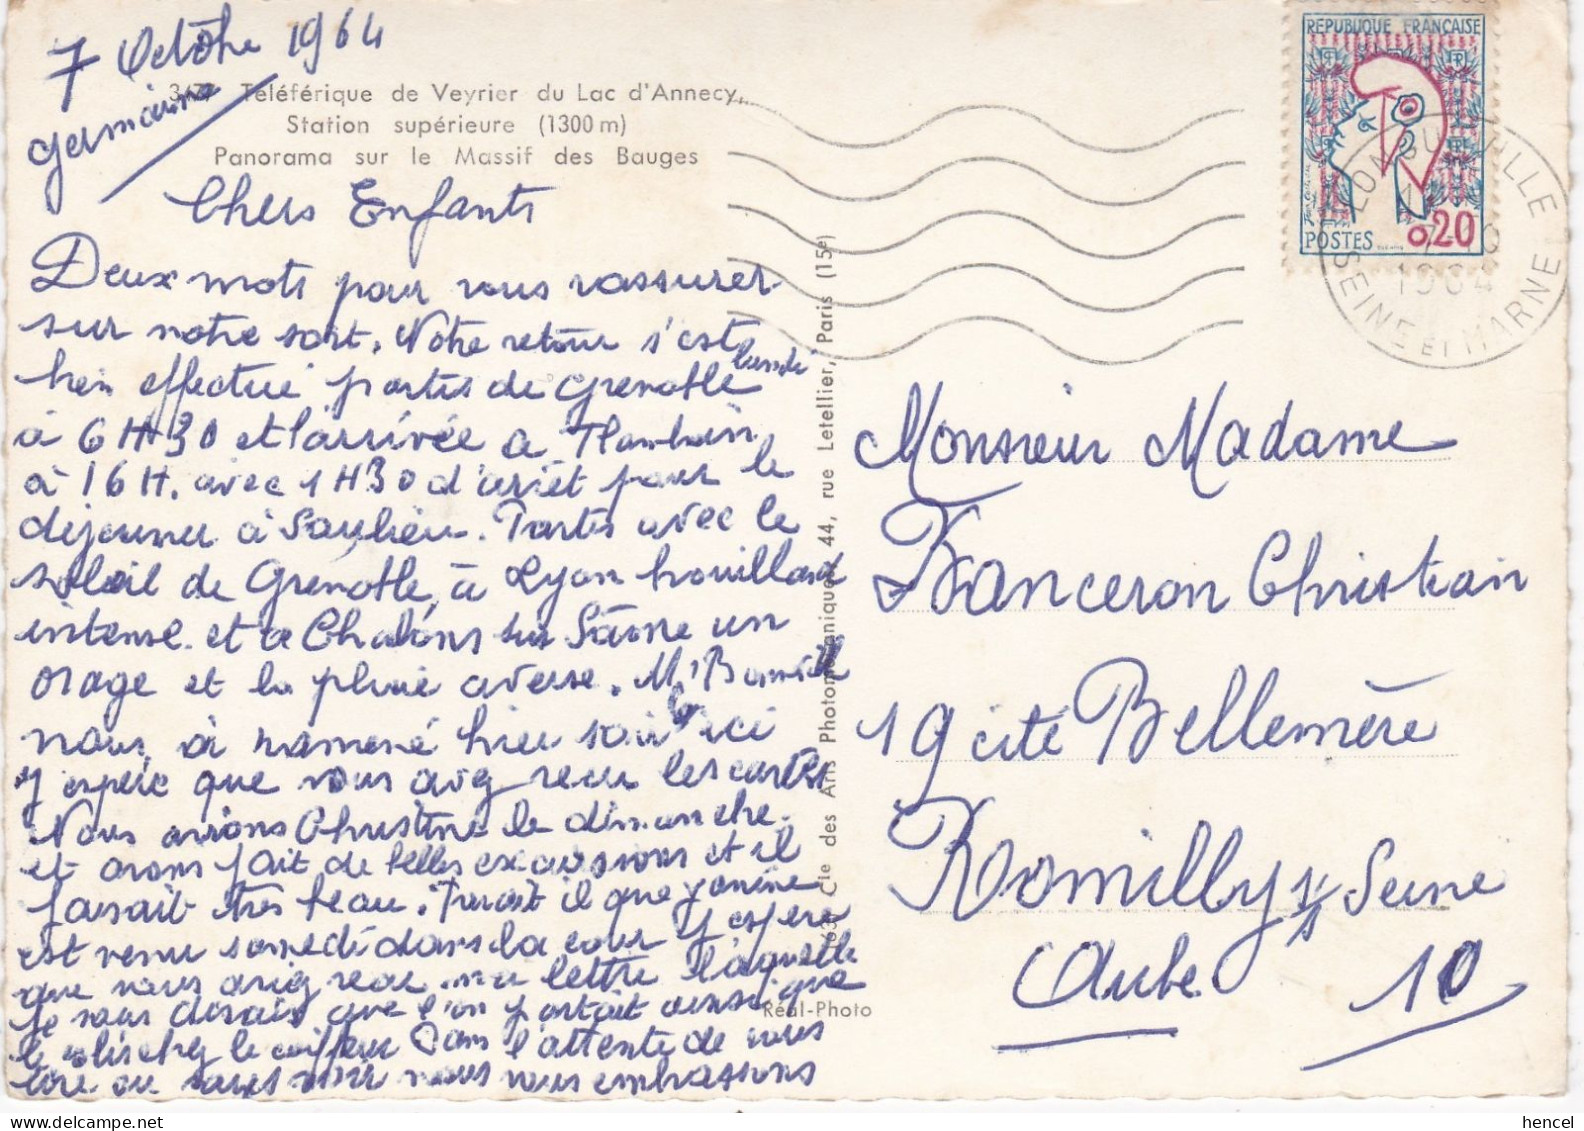 7 Octobre 1964
Germaine
367, Téléférique de Veyrier du Lac d'Annecy,
Station supérieure (1300 m)
Panorama sur le Massif des Bauges
Chers Enfants
Deux mots pour vous rassurer
sur notre sort. Notre retour s'est
bien effectué partis de Grenoble lundi
à 6H30 et l'arrivée a
à 16H. avec 1H30 d'arrêt pour le
déjeuner à Saulieu. Partis avec le
soleil de Grenoble, à Lyon brouillard
intense et a Châlons sur Sâone un
orage et la pluie averse. Mr
nous à ramené hier soir ici
J'espère que vous avez recu les cartes
Nous avions Christine le dimanche.
et avons fait de belles excursions et il
faisait très beau. Parait il que Janine
est venu samedi dans la cour J'espère
que vous avez recu ma lettre laquelle
Je vous disais que l'on partait ainsi que
le coiffeur Dans l'attente de vous
lire ou vous voir nous vous embrassons
Cie des Arts Photomécaniques 44, rue Letellier, Paris (15e)
Réal-Photo
REPUBLIQUE FRANÇAISE
POSTES 0,20
LONGUEVILLE
1964
SEINE ET MARNE
Monsieur Madame
Franceron Christian
19 cité Bellemère
Romilly s/s Seine
Aube 10
hencel